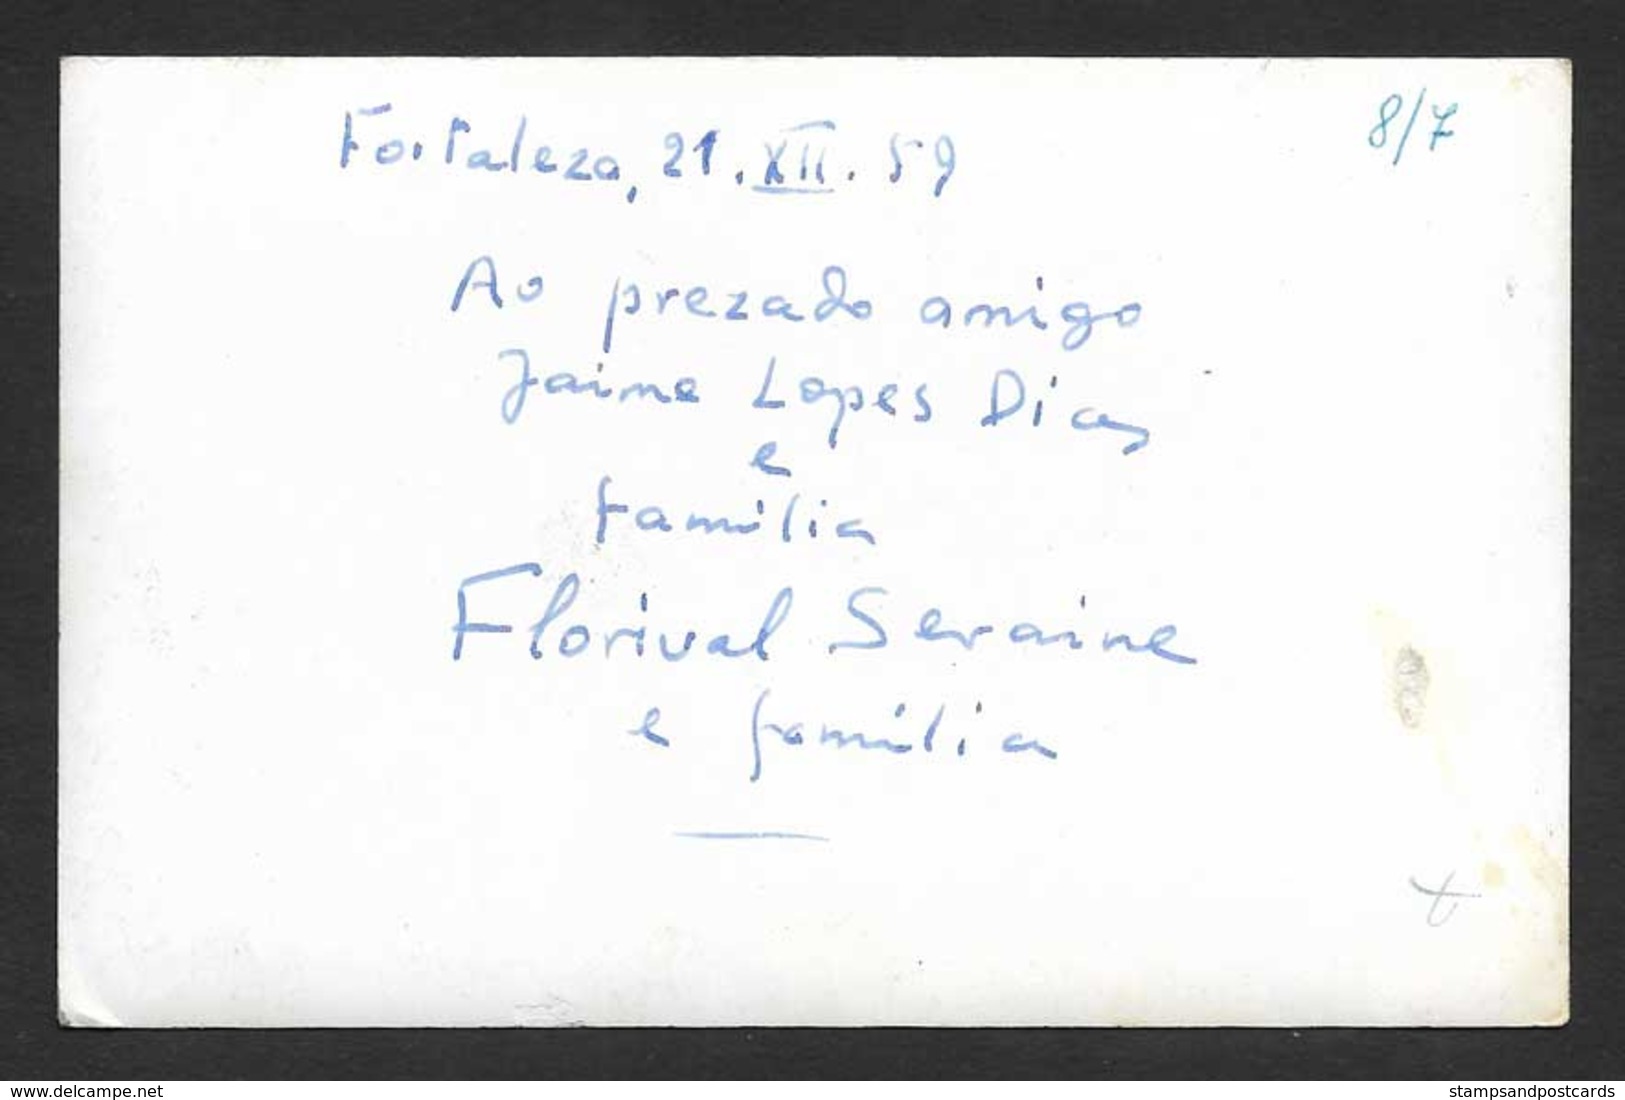 Fortaleza, 21.XII.59
8/7
Ao prezado amigo
Jaime Lopes Dias
e
família
Florival Seraine
e família
delcampe.net
stampsandpostcards